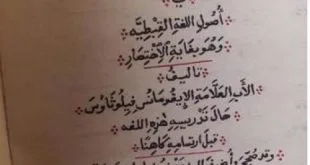 أصول اللغة القبطيه
وهو بغاية الاختصار
تأليف
الأب العلامة الإيغومانس فيلوثاوس
حال تدريسه هذه اللغه
قبل ارتسامه كاهنا